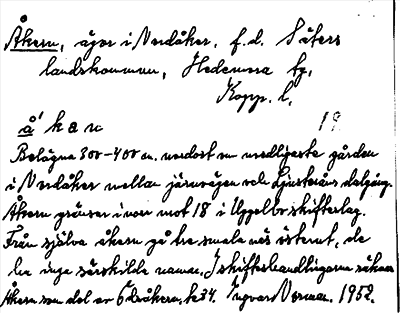 Åkern, ägor i Nordåker, f.d. Säters
landskommun, Hedemora tg,
Kopp. l.
å´ k a n 19.
Belägna 300-400 m. nordost om nordligaste gården
i Nordåker mellan järnvägen och Ljusteråns dalgång.
Åkern gränsar i norr mot 18 i Uppelbo skifteslag.
Från själva åkern gå tre smala näs österut, de
ha inga särskilda namn. I skifteshandlingarna räknas
Åkern som del av Österåkern, ha 34. Ingvar Norman. 1952.